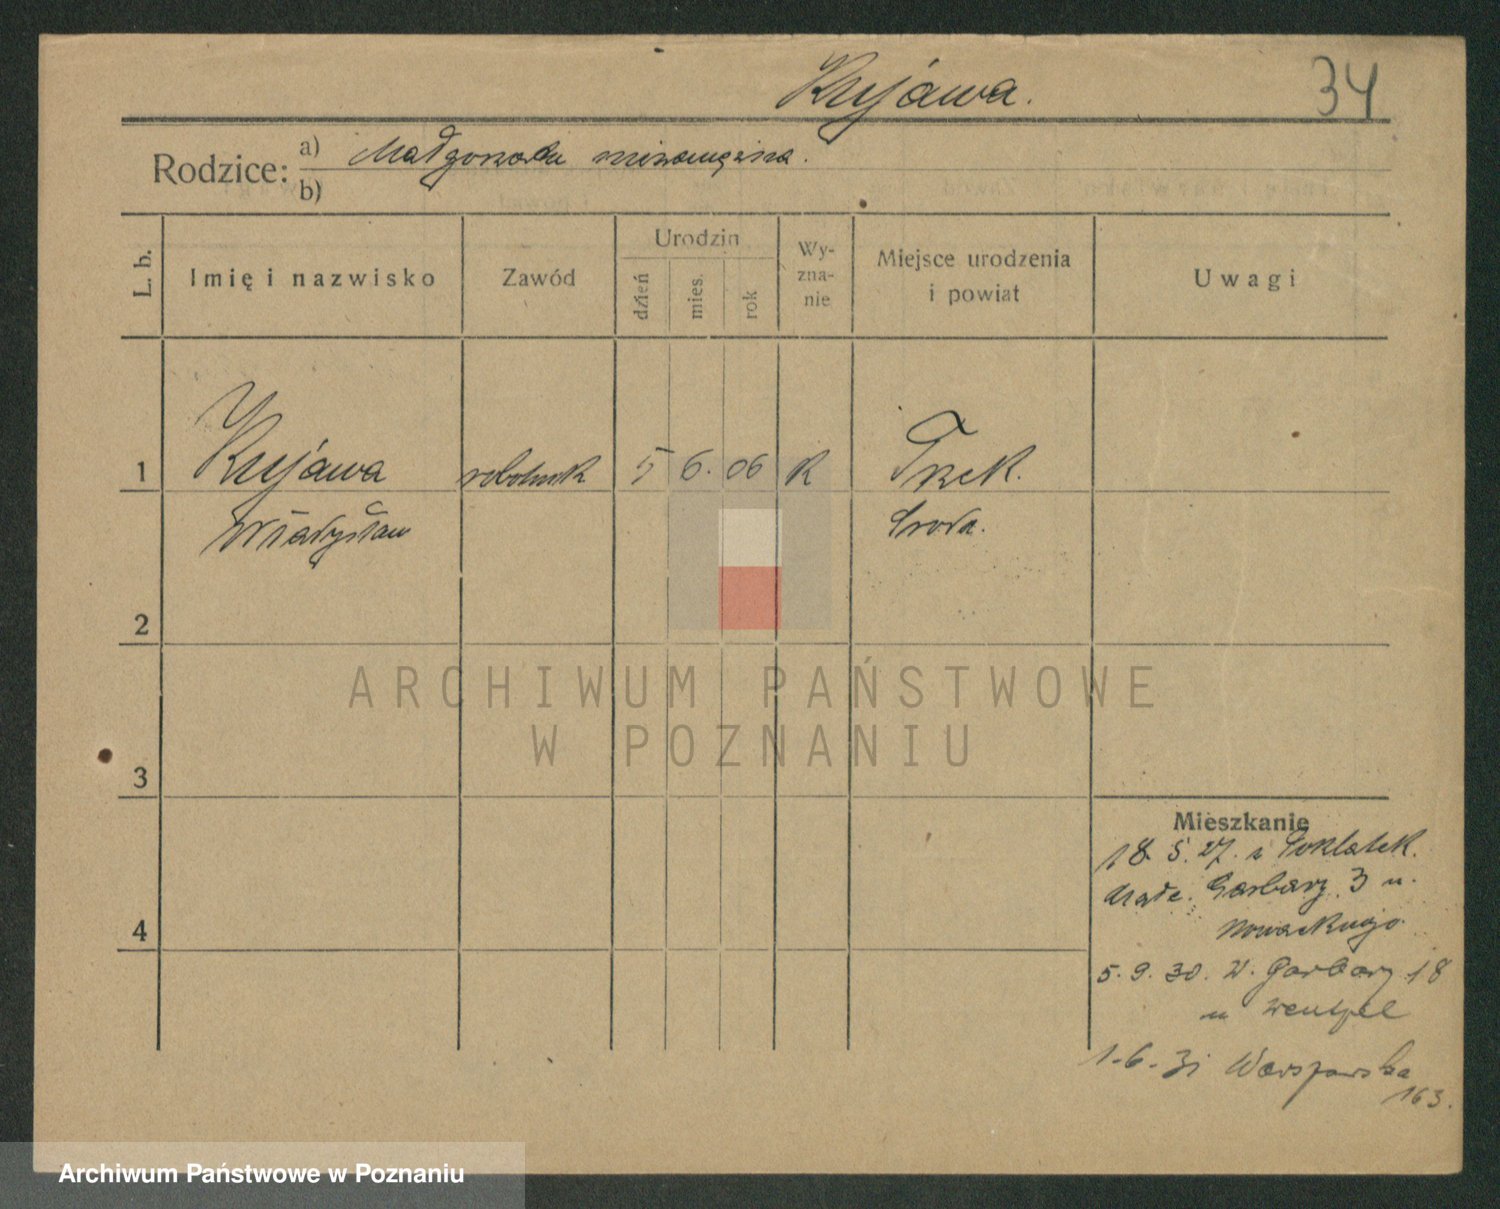 Kujawa.
34
Rodzice:
a) Małgorzata niezamężna.
b)
L. b.
Imię i nazwisko
Zawód
Urodzin
dzień
mies.
rok
Wy-
zna-
nie
Miejsce urodzenia
i powiat
Uwagi
1 Kujawa robotnik 5 6. 06 K
Władysław Środa.
2
ARCHIWUM PAŃSTWOWE
W POZNANIU
3
4
Mieszkanie
18. 5. 27. z
Garbary 3 u.
Nowackiego
5. 9. 30. W. Garbary 18
u Wentzel
1.6.31 Warszawska
163.
Archiwum Państwowe w Poznaniu